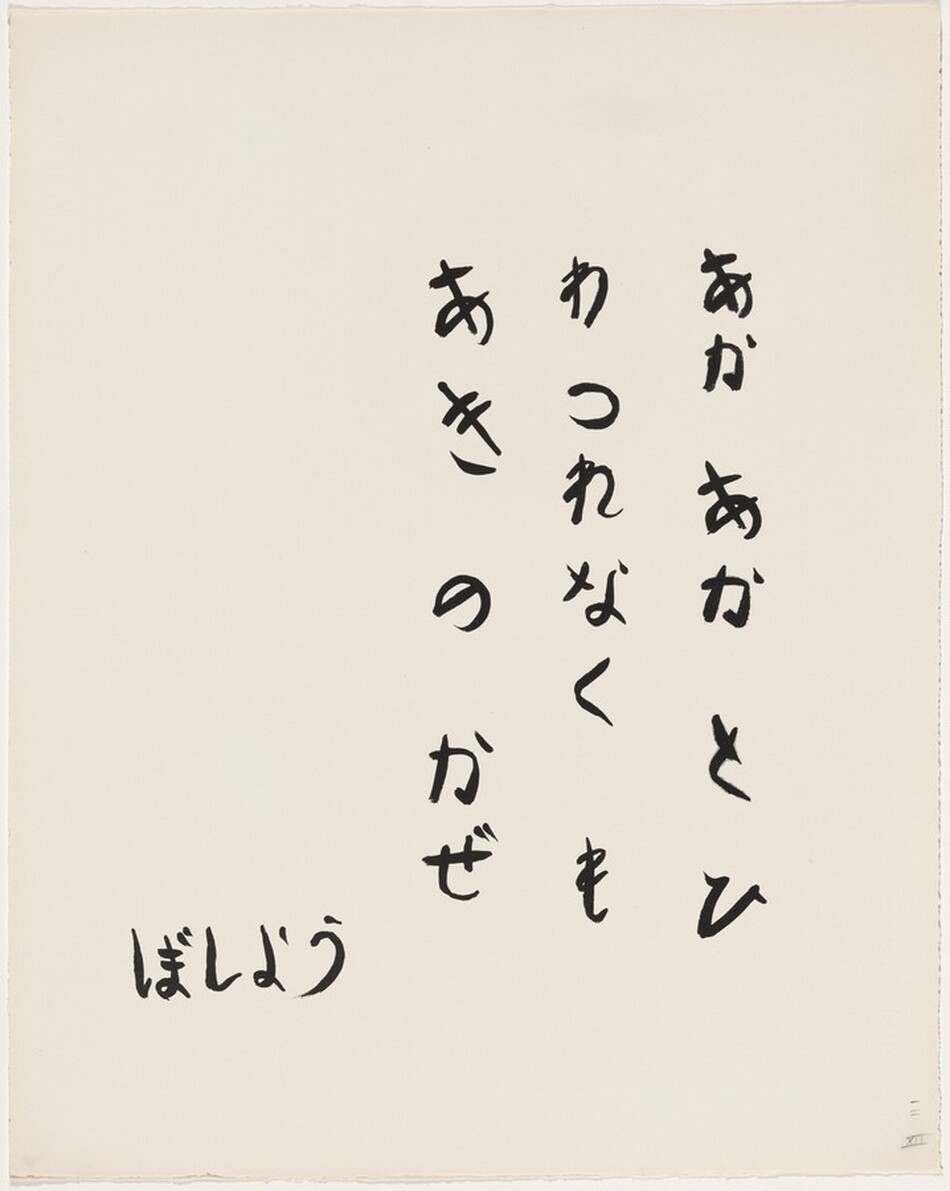 あか あか と ひ
わ つれなく も
あき の かぜ
ばしょう
一二
XII